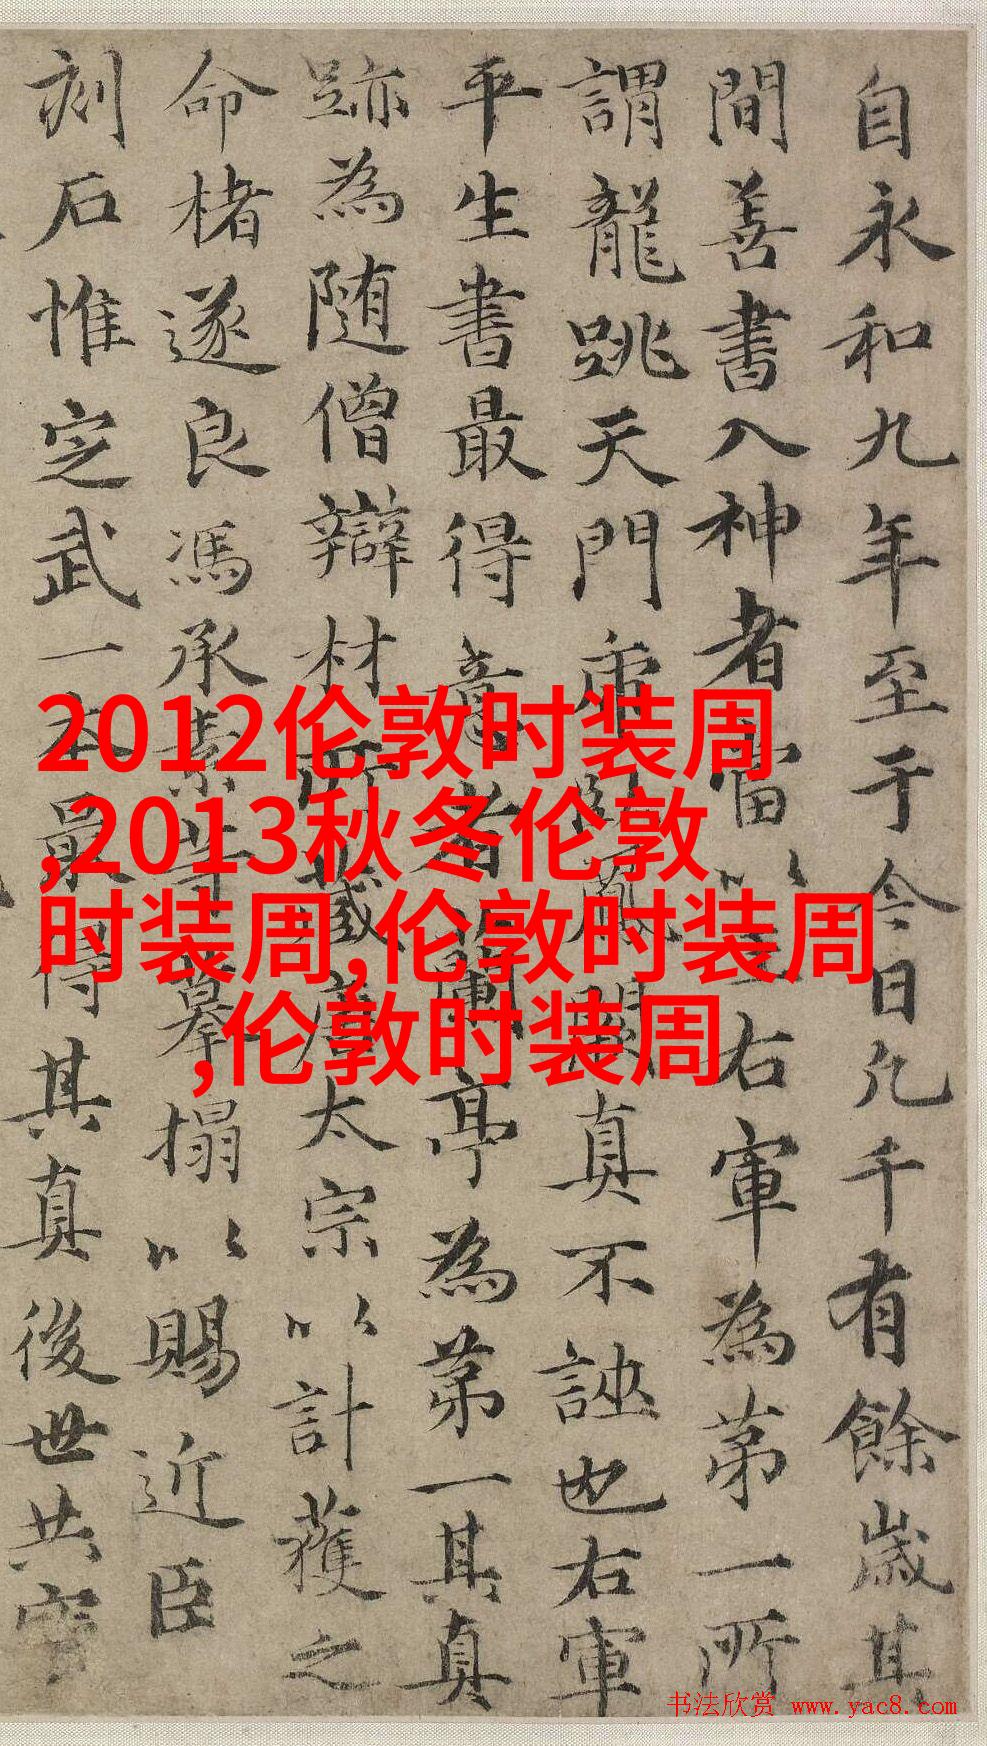 自永和九年至于今日凡千有餘歲其
間善書入神者當以王右軍為第一所
謂龍跳天門虎卧鳳閣真不誣也右軍
平生書最得意者蘭亭為第一其真
跡為随僧辯材所藏唐太宗以計獲之
命楮遂良馮承素等摹搨以賜近臣
刻石惟定武一本最得其真後世共
2012伦敦时装周
,2013秋冬伦敦
时装周,伦敦时装周
,伦敦时装周
书法欣赏 www.yac8.com